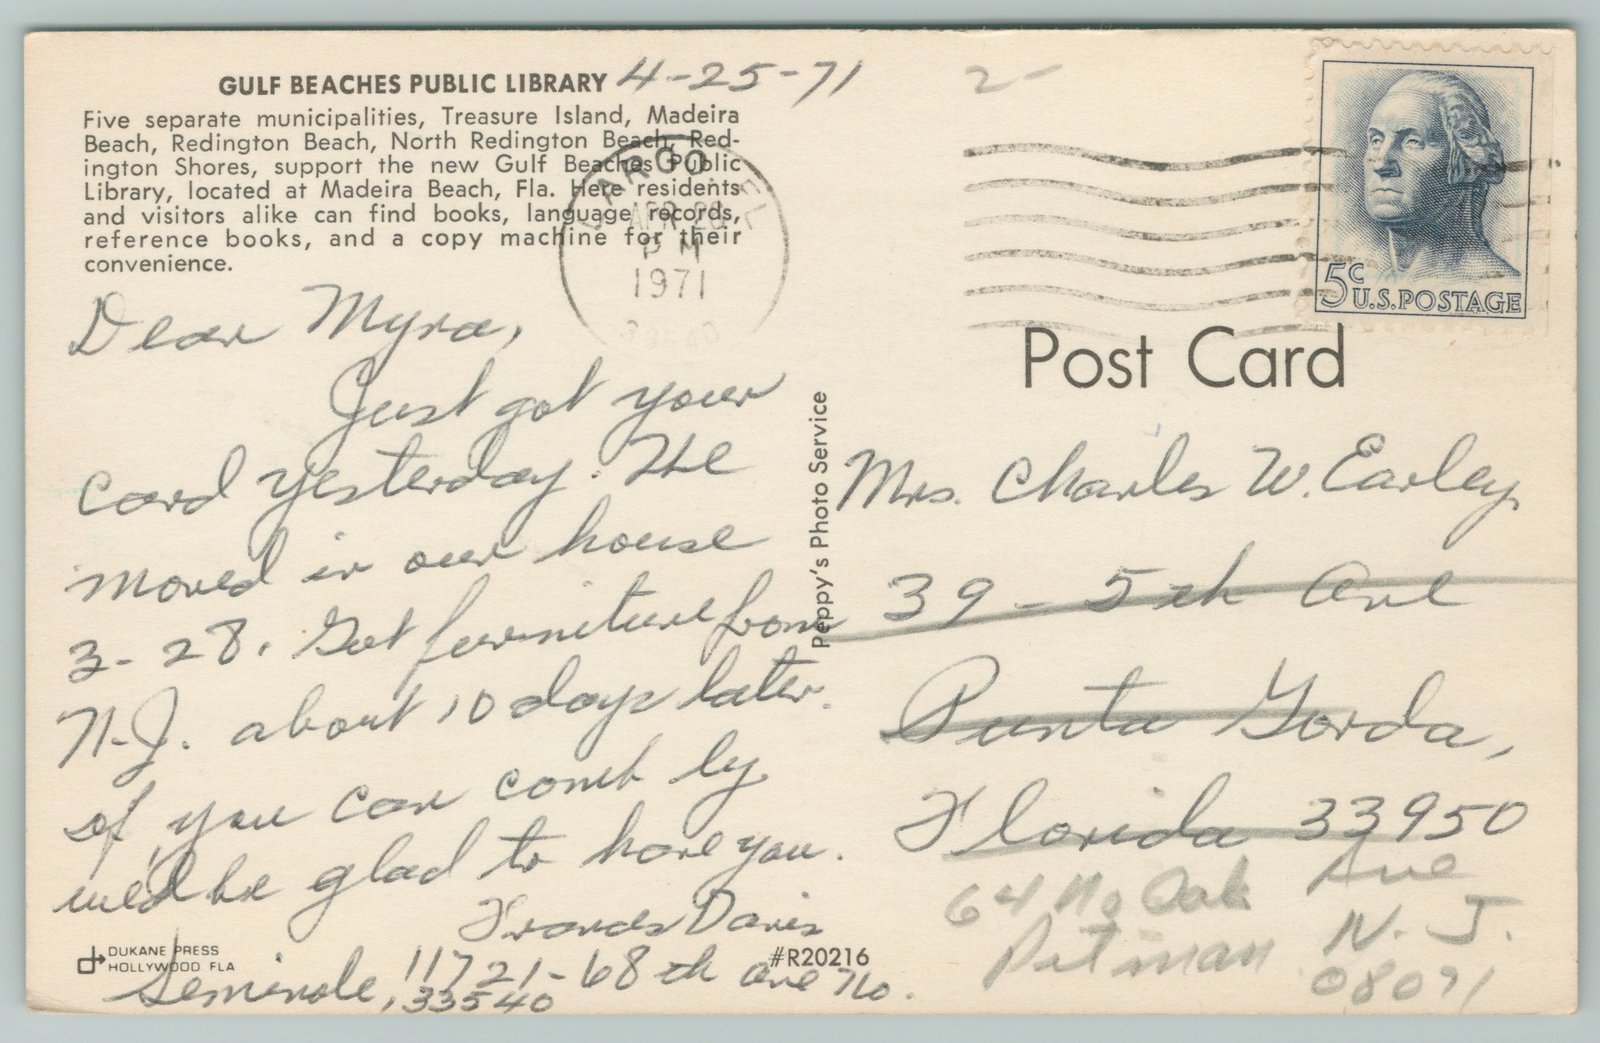 GULF BEACHES PUBLIC LIBRARY 4-25-71
Five separate municipalities, Treasure Island, Madeira
Beach, Redington Beach, North Redington Beach, Red-
ington Shores, support the new Gulf Beaches Public
Library, located at Madeira Beach, Fla. Here residents
and visitors alike can find books, language records,
reference books, and a copy machine for their
convenience.
LARGO, FL
APR 26
PM
1971
Dear Myra,
Just got your
card yesterday. We
moved in our house
3-28. Got furniture from
N.J. about 10 days later.
If you can come by
we'd be glad to have you.
Frances Davis
11721-68th Ave No.
Seminole, 33540
DUKANE PRESS
HOLLYWOOD FLA
#R20216
Peppy's Photo Service
2-
5c
U.S.POSTAGE
Post Card
Mrs. Charles W. Earley,
39 - 5th Ave
Punta Gorda,
Florida 33950
64 No Oak Ave
Pitman N.J.
08071